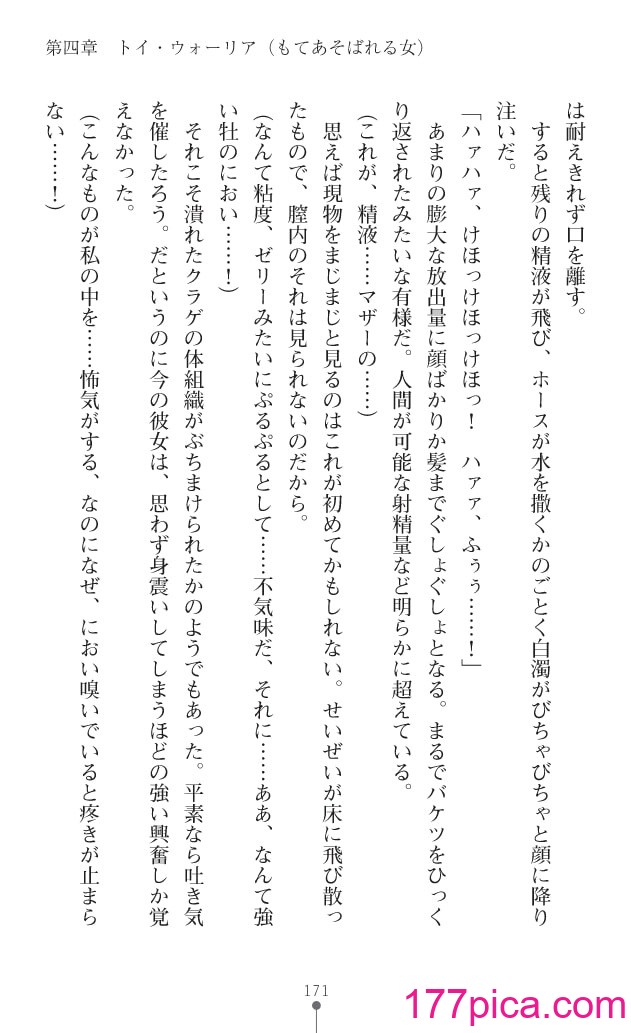 第四章　トイ・ウォーリア（もてあそばれる女）
は耐えきれず口を離す。
　すると残りの精液が飛び、ホースが水を撒くかのごとく白濁がびちゃびちゃと顔に降り
注いだ。
「ハァハァ、けほっけほっけほっ！　ハァァ、ふぅぅ……！」
　あまりの膨大な放出量に顔ばかりか髪までぐしょぐしょとなる。まるでバケツをひっく
り返されたみたいな有様だ。人間が可能な射精量など明らかに超えている。
（これが、精液……マザーの……）
　思えば現物をまじまじと見るのはこれが初めてかもしれない。せいぜいが床に飛び散っ
たもので、膣内のそれは見られないのだから。
（なんて粘度、ゼリーみたいにぷるぷるとして……不気味だ、それに……ああ、なんて強
い牡のにおい……！）
　それこそ潰れたクラゲの体組織がぶちまけられたかのようでもあった。平素なら吐き気
を催したろう。だというのに今の彼女は、思わず身震いしてしまうほどの強い興奮しか覚
えなかった。
（こんなものが私の中を……怖気がする、なのになぜ、におい嗅いでいると疼きが止まら
ない……！）
171
177pica.com